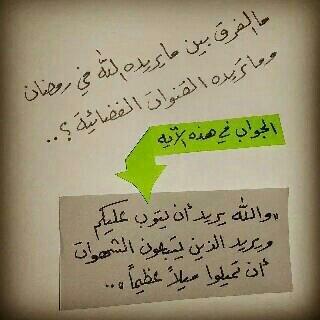 ما الفرق بين ما يريده الله في رمضان
وما تريده القنوات الفضائية ؟..
الجواب في هذه الآيه
"والله يريد أن يتوب عليكم
ويريد الذين يتبعون الشهوات
أن تميلوا ميلاً عظيماً"..